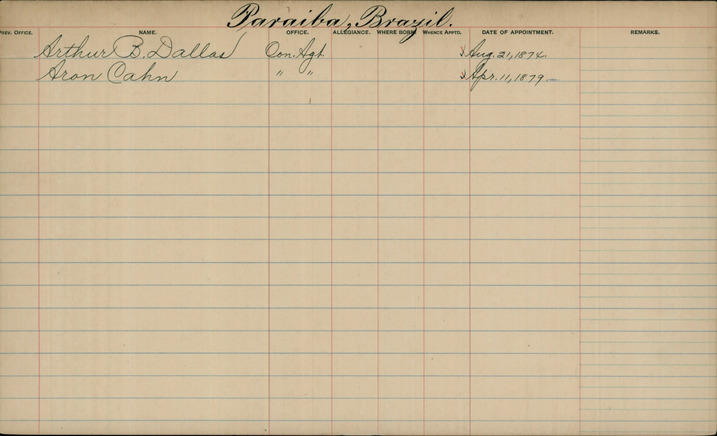 Paraiba, Brazil.
PREV. OFFICE. NAME. OFFICE. ALLEGIANCE. WHERE BORN WHENCE APPTD. DATE OF APPOINTMENT. REMARKS.
Arthur B. Dallas Con. Agt. Aug. 21, 1874.
Aron Cahn " " Apr. 11, 1879.—